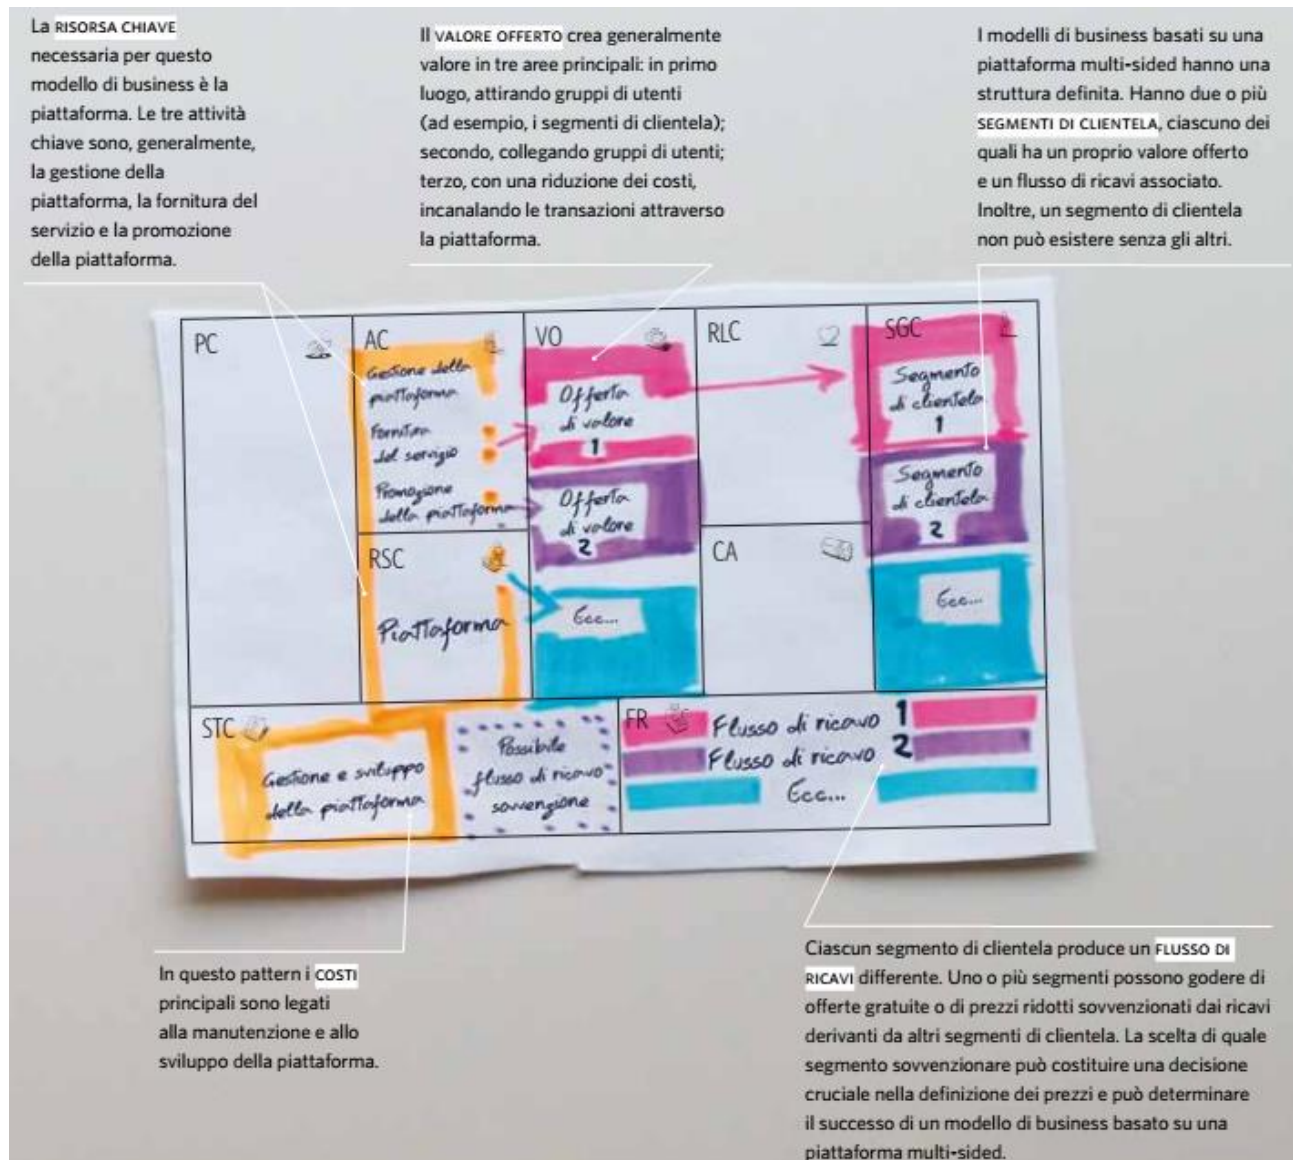 La RISORSA CHIAVE
necessaria per questo
modello di business è la
piattaforma. Le tre attività
chiave sono, generalmente,
la gestione della
piattaforma, la fornitura del
servizio e la promozione
della piattaforma.
Il VALORE OFFERTO crea generalmente
valore in tre aree principali: in primo
luogo, attirando gruppi di utenti
(ad esempio, i segmenti di clientela);
secondo, collegando gruppi di utenti;
terzo, con una riduzione dei costi,
incanalando le transazioni attraverso
la piattaforma.
I modelli di business basati su una
piattaforma multi-sided hanno una
struttura definita. Hanno due o più
SEGMENTI DI CLIENTELA, ciascuno dei
quali ha un proprio valore offerto
e un flusso di ricavi associato.
Inoltre, un segmento di clientela
non può esistere senza gli altri.
PC
AC
Gestione della
piattaforma
Fornitura
del servizio
Promozione
della piattaforma
RSC
Piattaforma
VO
Offerta
di valore
1
Offerta
di valore
2
Ecc...
RLC
CA
SGC
Segmento
di clientela
1
Segmento
di clientela
2
Ecc...
STC
Gestione e sviluppo
della piattaforma
Possibile
flusso di ricavo
sovvenzione
FR
Flusso di ricavo 1
Flusso di ricavo 2
Ecc...
In questo pattern i COSTI
principali sono legati
alla manutenzione e allo
sviluppo della piattaforma.
Ciascun segmento di clientela produce un FLUSSO DI
RICAVI differente. Uno o più segmenti possono godere di
offerte gratuite o di prezzi ridotti sovvenzionati dai ricavi
derivanti da altri segmenti di clientela. La scelta di quale
segmento sovvenzionare può costituire una decisione
cruciale nella definizione dei prezzi e può determinare
il successo di un modello di business basato su una
piattaforma multi-sided.